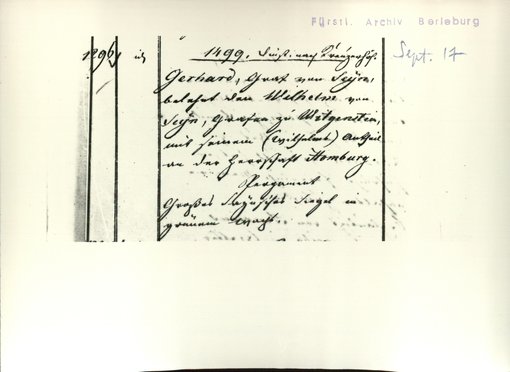 Fürstl. Archiv Berleburg
Sept. 17
1499. Dinst. nach Kreuzerhöh.
Gerhard, Graf von Seyn,
belehnt den Wilhelm von
Seyn, Grafen zu Witgenstein,
mit seinem (Wilhelms) Antheil
an der Herrschaft Homburg.
Pergament
Großes Saynsches Siegel in
grünem Wachs.